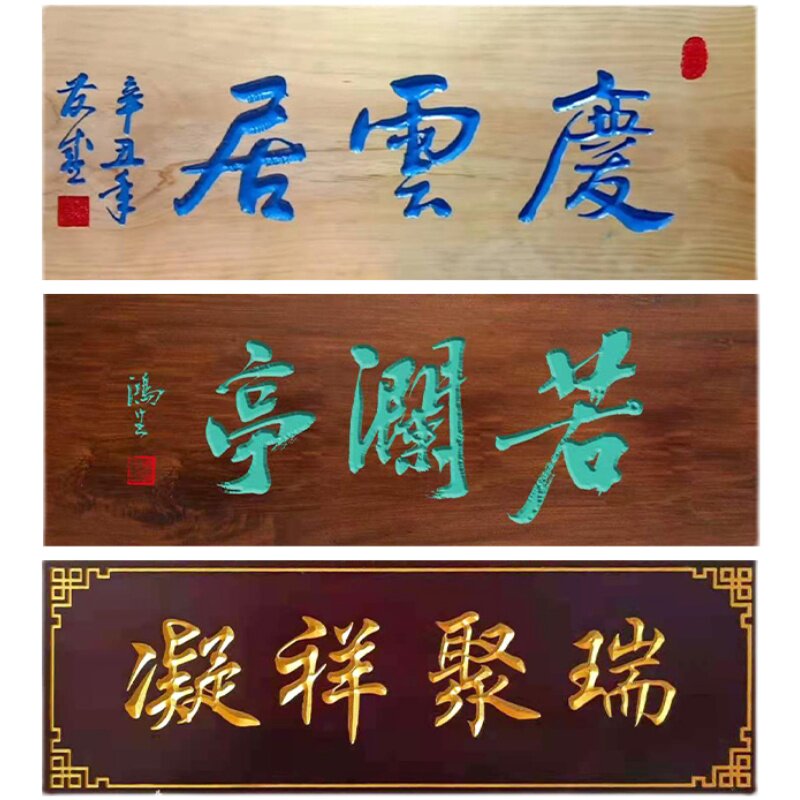 慶雲居
辛丑年
若瀾亭
瑞聚祥凝